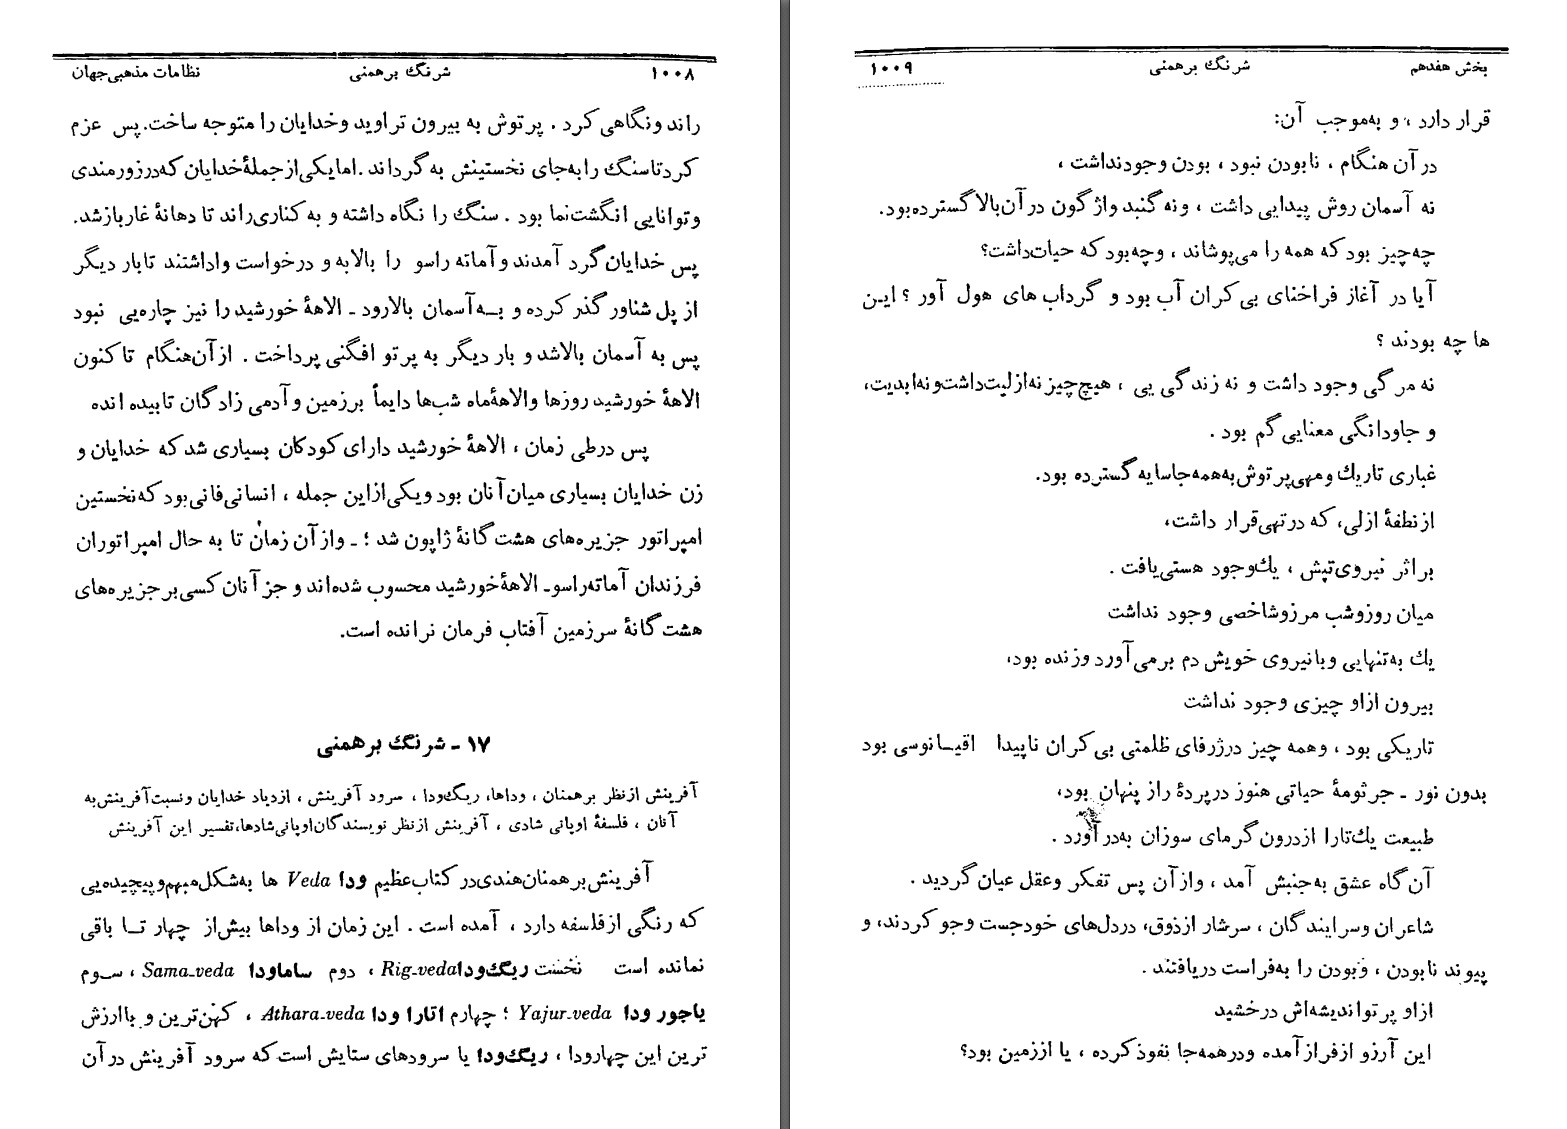 نظامات مذهبی جهان شرنگ برهمنی ۱۰۰۸
راند ونگاهی کرد . پرتوش به بیرون تراوید وخدایان را متوجه ساخت. پس عزم
کرد تا سنگ را به‌جای نخستینش به گرداند . اما یکی از جملهٔ خدایان که در زورمندی
وتوانایی انگشت‌نما بود . سنگ را نگاه داشته و به کناری راند تا دهانهٔ غار بازشد.
پس خدایان گرد آمدند و آماته راسو را بالابه و درخواست واداشتند تا بار دیگر
از پل شناور گذر کرده و بــه آسمان بالا رود ـ الاههٔ خورشید را نیز چاره‌یی نبود
پس به آسمان بالاشد و بار دیگر به پرتو افگنی پرداخت . از آن‌هنگام تا کنون
الاههٔ خورشید روزها والاههٔ‌ماه شب‌ها دایماً بر زمین و آدمی زادگان تابیده‌اند
پس درطی زمان ، الاههٔ خورشید دارای کودکان بسیاری شد که خدایان و
زن خدایان بسیاری میان آنان بود و یکی از این جمله ، انسانی فانی بود که نخستین
امپراتور جزیره‌های هشت گانهٔ ژاپون شد ؛ ـ واز آن زمان تا به حال امپراتوران
فرزندان آماته‌راسو ـ الاههٔ خورشید محسوب شده‌اند و جز آنان کسی بر جزیره‌های
هشت گانهٔ سرزمین آفتاب فرمان نرانده است.
۱۷ ـ شرنگ برهمنی
آفرینش ازنظر برهمنان ، وداها، ریگ‌ودا ، سرود آفرینش ، ازدیاد خدایان ونسبت آفرینش به
آنان ، فلسفهٔ اوپانی شادی ، آفرینش ازنظر نویسندگان اوپانی‌شادها، تفسیر این آفرینش
آفرینش برهمنان هندی در کتاب عظیم ودا Veda ها به‌شکل مبهم و پیچیده‌یی
که رنگی از فلسفه دارد ، آمده است . این زمان از وداها بیش از چهار تــا باقی
نمانده است نخست ریگ‌ودا Rig-veda ، دوم ساماودا Sama-veda ، ســوم
یاجور ودا Yajur-veda ؛ چهارم اتارا ودا Athara-veda ، کهن‌ترین و باارزش
ترین این چهار ودا ، ریگ‌ودا یا سرودهای ستایش است که سرود آفرینش در آن
بخش هفدهم شرنگ برهمنی ۱۰۰۹
قرار دارد ، و به‌موجب آن:
در آن هنگام ، نابودن نبود ، بودن وجود نداشت ،
نه آسمان روش پیدایی داشت ، و نه گنبد واژگون در آن بالا گسترده بود.
چه‌چیز بود که همه را می‌پوشاند ، وچه‌بود که حیات‌داشت؟
آیا در آغاز فراخنای بی‌کران آب بود و گرداب های هول آور ؟ ایــن
ها چه بودند ؟
نه مرگی وجود داشت و نه زندگی یی ، هیچ چیز نه ازلیت داشت و نه ابدیت،
و جاودانگی معنایی گم بود .
غباری تاریك و مهی پرتوش به همه جا سایه گسترده بود.
از نطفهٔ ازلی، که در تهی قرار داشت،
بر اثر نیروی تپش ، یك وجود هستی یافت .
میان روز و شب مرز و شاخصی وجود نداشت
یك به تنهایی و با نیروی خویش دم برمی آورد و زنده بود،
بیرون از او چیزی وجود نداشت
تاریکی بود ، وهمه چیز در ژرفای ظلمتی بی‌کران ناپیدا اقیــانوسی بود
بدون نور ـ جرثومهٔ حیاتی هنوز در پردهٔ راز پنهان بود،
طبیعت یك‌تارا از درون گرمای سوزان به‌در آورد .
آن گاه عشق به جنبش آمد ، واز آن پس تفکر وعقل عیان گردید .
شاعران وسرایندگان ، سرشار از ذوق، در دل‌های خود جست وجو کردند، و
پیوند نابودن ، و بودن را به فراست دریافتند .
از او پرتو اندیشه‌اش درخشید
این آرزو از فراز آمده و در همه جا نفوذ کرده ، یا از زمین بود؟